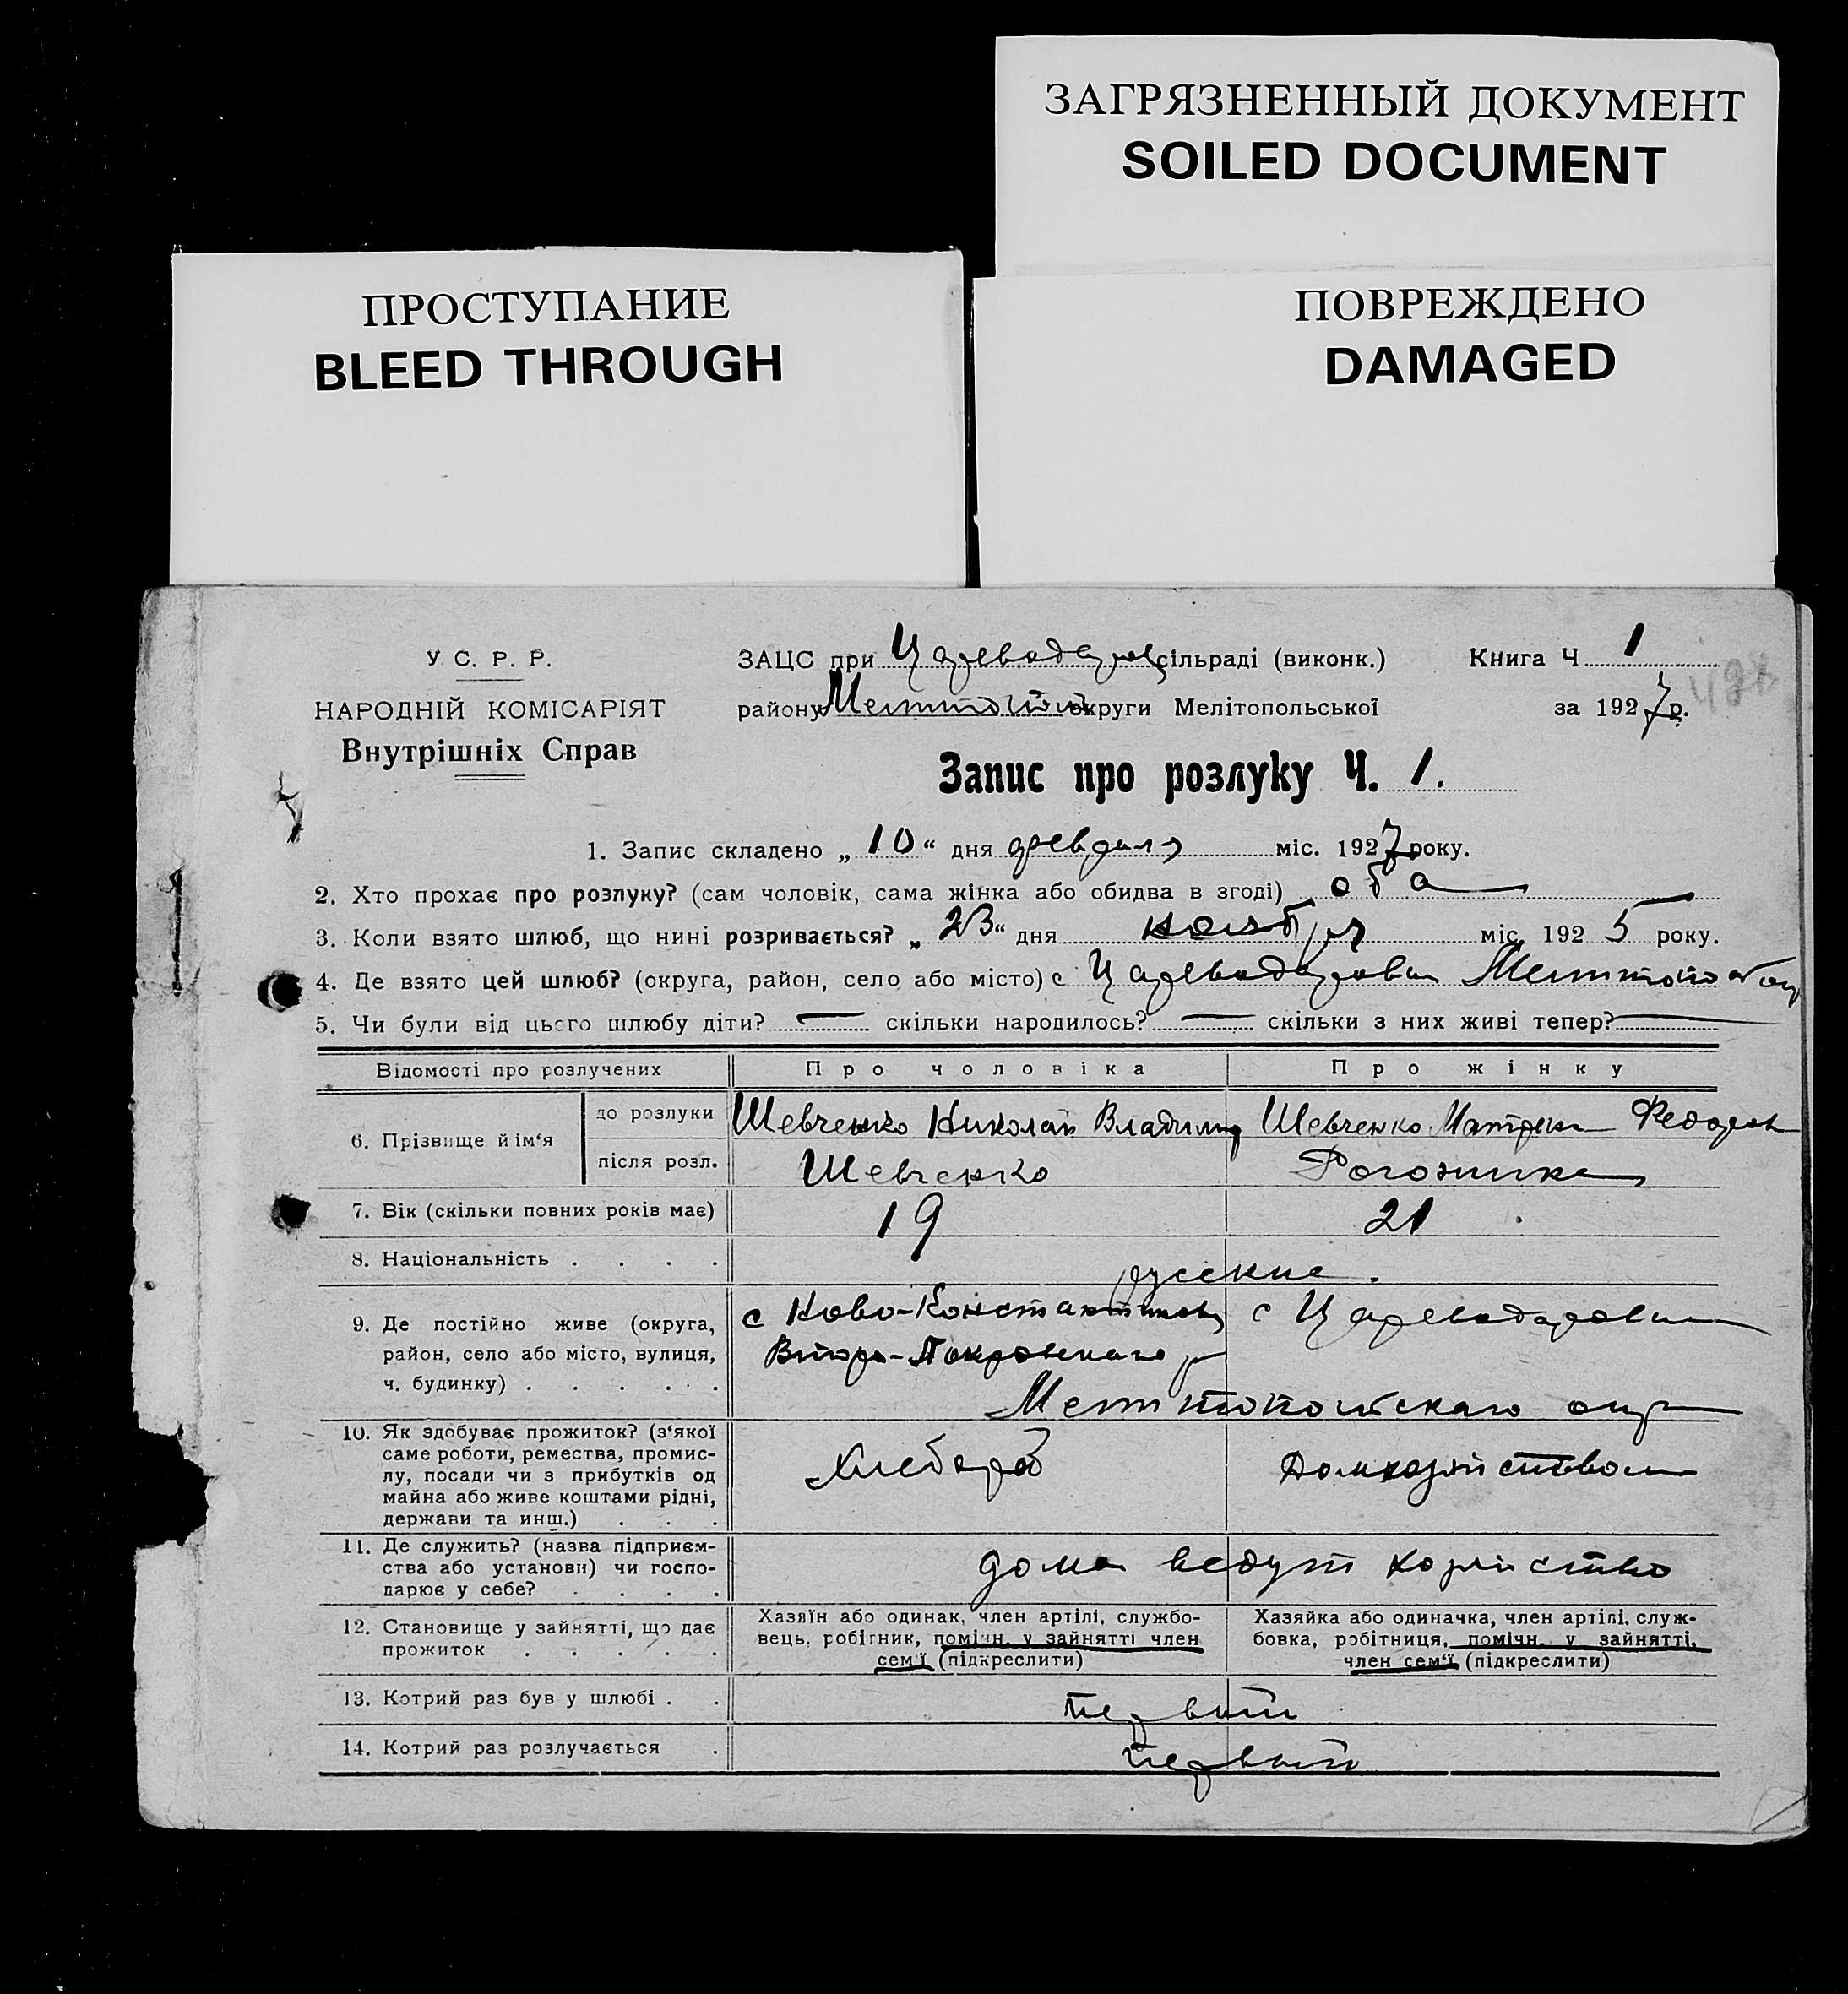 ЗАГРЯЗНЕННЫЙ ДОКУМЕНТ
SOILED DOCUMENT
ПРОСТУПАНИЕ
BLEED THROUGH
ПОВРЕЖДЕНО
DAMAGED
У С. Р. Р.
НАРОДНІЙ КОМІСАРІЯТ
Внутрішніх Справ
ЗАЦС при Цареводаров сільраді (виконк.) Книга Ч 1
району Мелитопол округи Мелітопольської за 1927 р.
Запис про розлуку Ч. 1.
1. Запис складено „ 10 “ дня февраля міс. 1927 року.
2. Хто прохає про розлуку? (сам чоловік, сама жінка або обидва в згоді) оба
3. Коли взято шлюб, що нині розривається? „ 23 “ дня ноября міс. 1925 року.
4. Де взято цей шлюб? (округа, район, село або місто) с Цареводаровка Мелитополь
5. Чи були від цього шлюбу діти? — скільки народилось? — скільки з них живі тепер? —
Відомості про розлучених Про чоловіка Про жінку
6. Прізвище й ім‘я
до розлуки Шевченко Николай Владимир Шевченко Матрена Федоров
після розл. Шевченко Рогожина
7. Вік (скільки повних років має) 19 21
8. Національність . . . . русские.
9. Де постійно живе (округа,
район, село або місто, вулиця,
ч. будинку) . . . . .
с Ново-Константинов с Цареводаровка
Второ-Покровскаго р
Мелитопольскаго окр
10. Як здобуває прожиток? (з‘якої
саме роботи, ремества, промис-
лу, посади чи з прибутків од
майна або живе коштами рідні,
держави та инш.) . . .
Хлебороб Домхозяйством
11. Де служить? (назва підприєм-
ства або установи) чи госпо-
дарює у себе? . . . .
дома ведут хозяйство
12. Становище у зайнятті, що дає
прожиток . . . . .
Хазяїн або одинак, член артілі, службо-
вець, робітник, помічн. у зайнятті член
сем‘ї (підкреслити)
Хазяйка або одиначка, член артілі, служ-
бовка, робітниця, помічн. у зайнятті,
член сем‘ї (підкреслити)
13. Котрий раз був у шлюбі . . первый
14. Котрий раз розлучається . первый